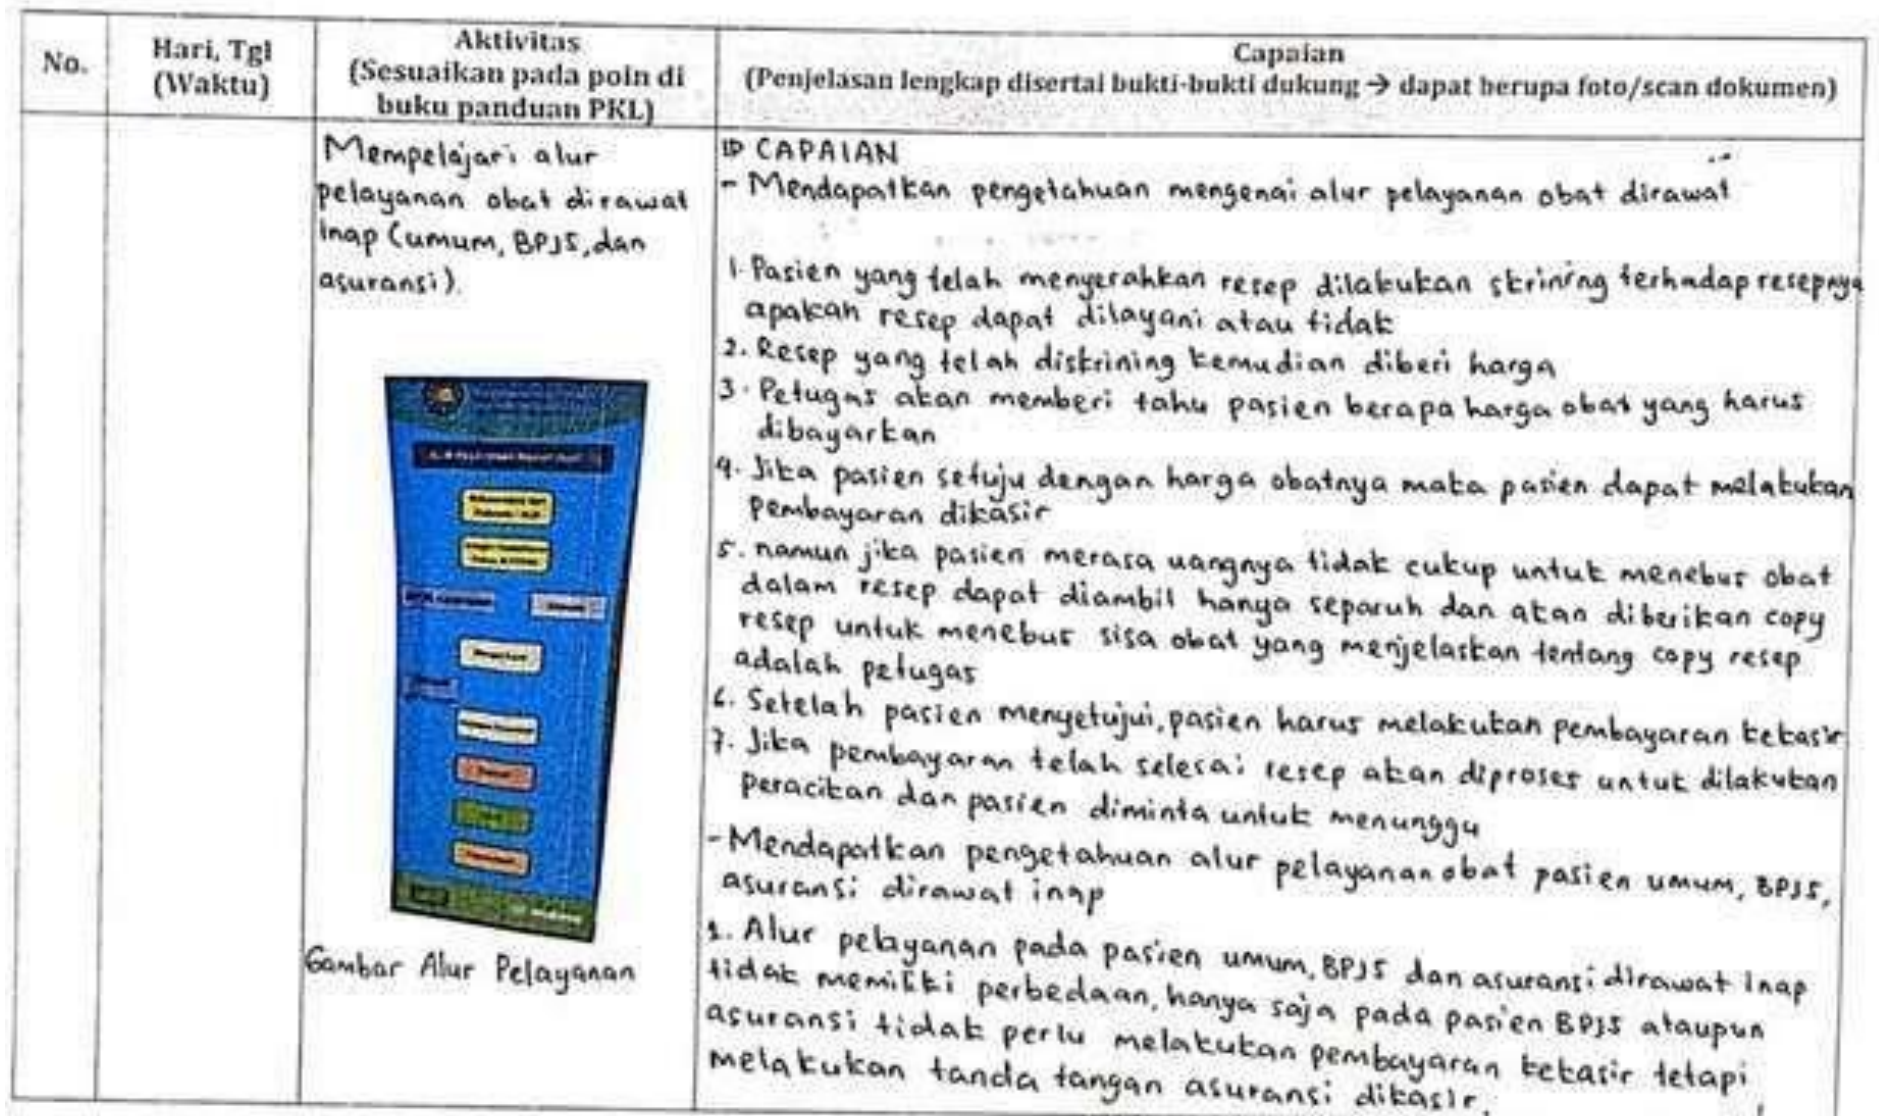 No.
Hari, Tgl
(Waktu)
Aktivitas
(Sesuaikan pada poin di
buku panduan PKL)
Capaian
(Penjelasan lengkap disertai bukti-bukti dukung → dapat berupa foto/scan dokumen)
Mempelajari alur
pelayanan obat dirawat
inap (umum, BPJS, dan
asuransi).
Gambar Alur Pelayanan
CAPAIAN
- Mendapatkan pengetahuan mengenai alur pelayanan obat dirawat
1. Pasien yang telah menyerahkan resep dilakukan skrining terhadap resepnya
apakah resep dapat dilayani atau tidak
2. Resep yang telah diskrining kemudian diberi harga
3. Petugas akan memberi tahu pasien berapa harga obat yang harus
dibayarkan
4. Jika pasien setuju dengan harga obatnya maka pasien dapat melakukan
pembayaran dikasir
5. namun jika pasien merasa uangnya tidak cukup untuk menebus obat
dalam resep dapat diambil hanya separuh dan akan diberikan copy
resep untuk menebus sisa obat yang menjelaskan tentang copy resep
adalah petugas
6. Setelah pasien menyetujui, pasien harus melakukan pembayaran kekasir
7. Jika pembayaran telah selesai resep akan diproses untuk dilakukan
peracikan dan pasien diminta untuk menunggu
- Mendapatkan pengetahuan alur pelayanan obat pasien umum, BPJS,
asuransi dirawat inap
1. Alur pelayanan pada pasien umum, BPJS dan asuransi dirawat inap
tidak memiliki perbedaan, hanya saja pada pasien BPJS ataupun
asuransi tidak perlu melakukan pembayaran kekasir tetapi
melakukan tanda tangan asuransi dikasir.